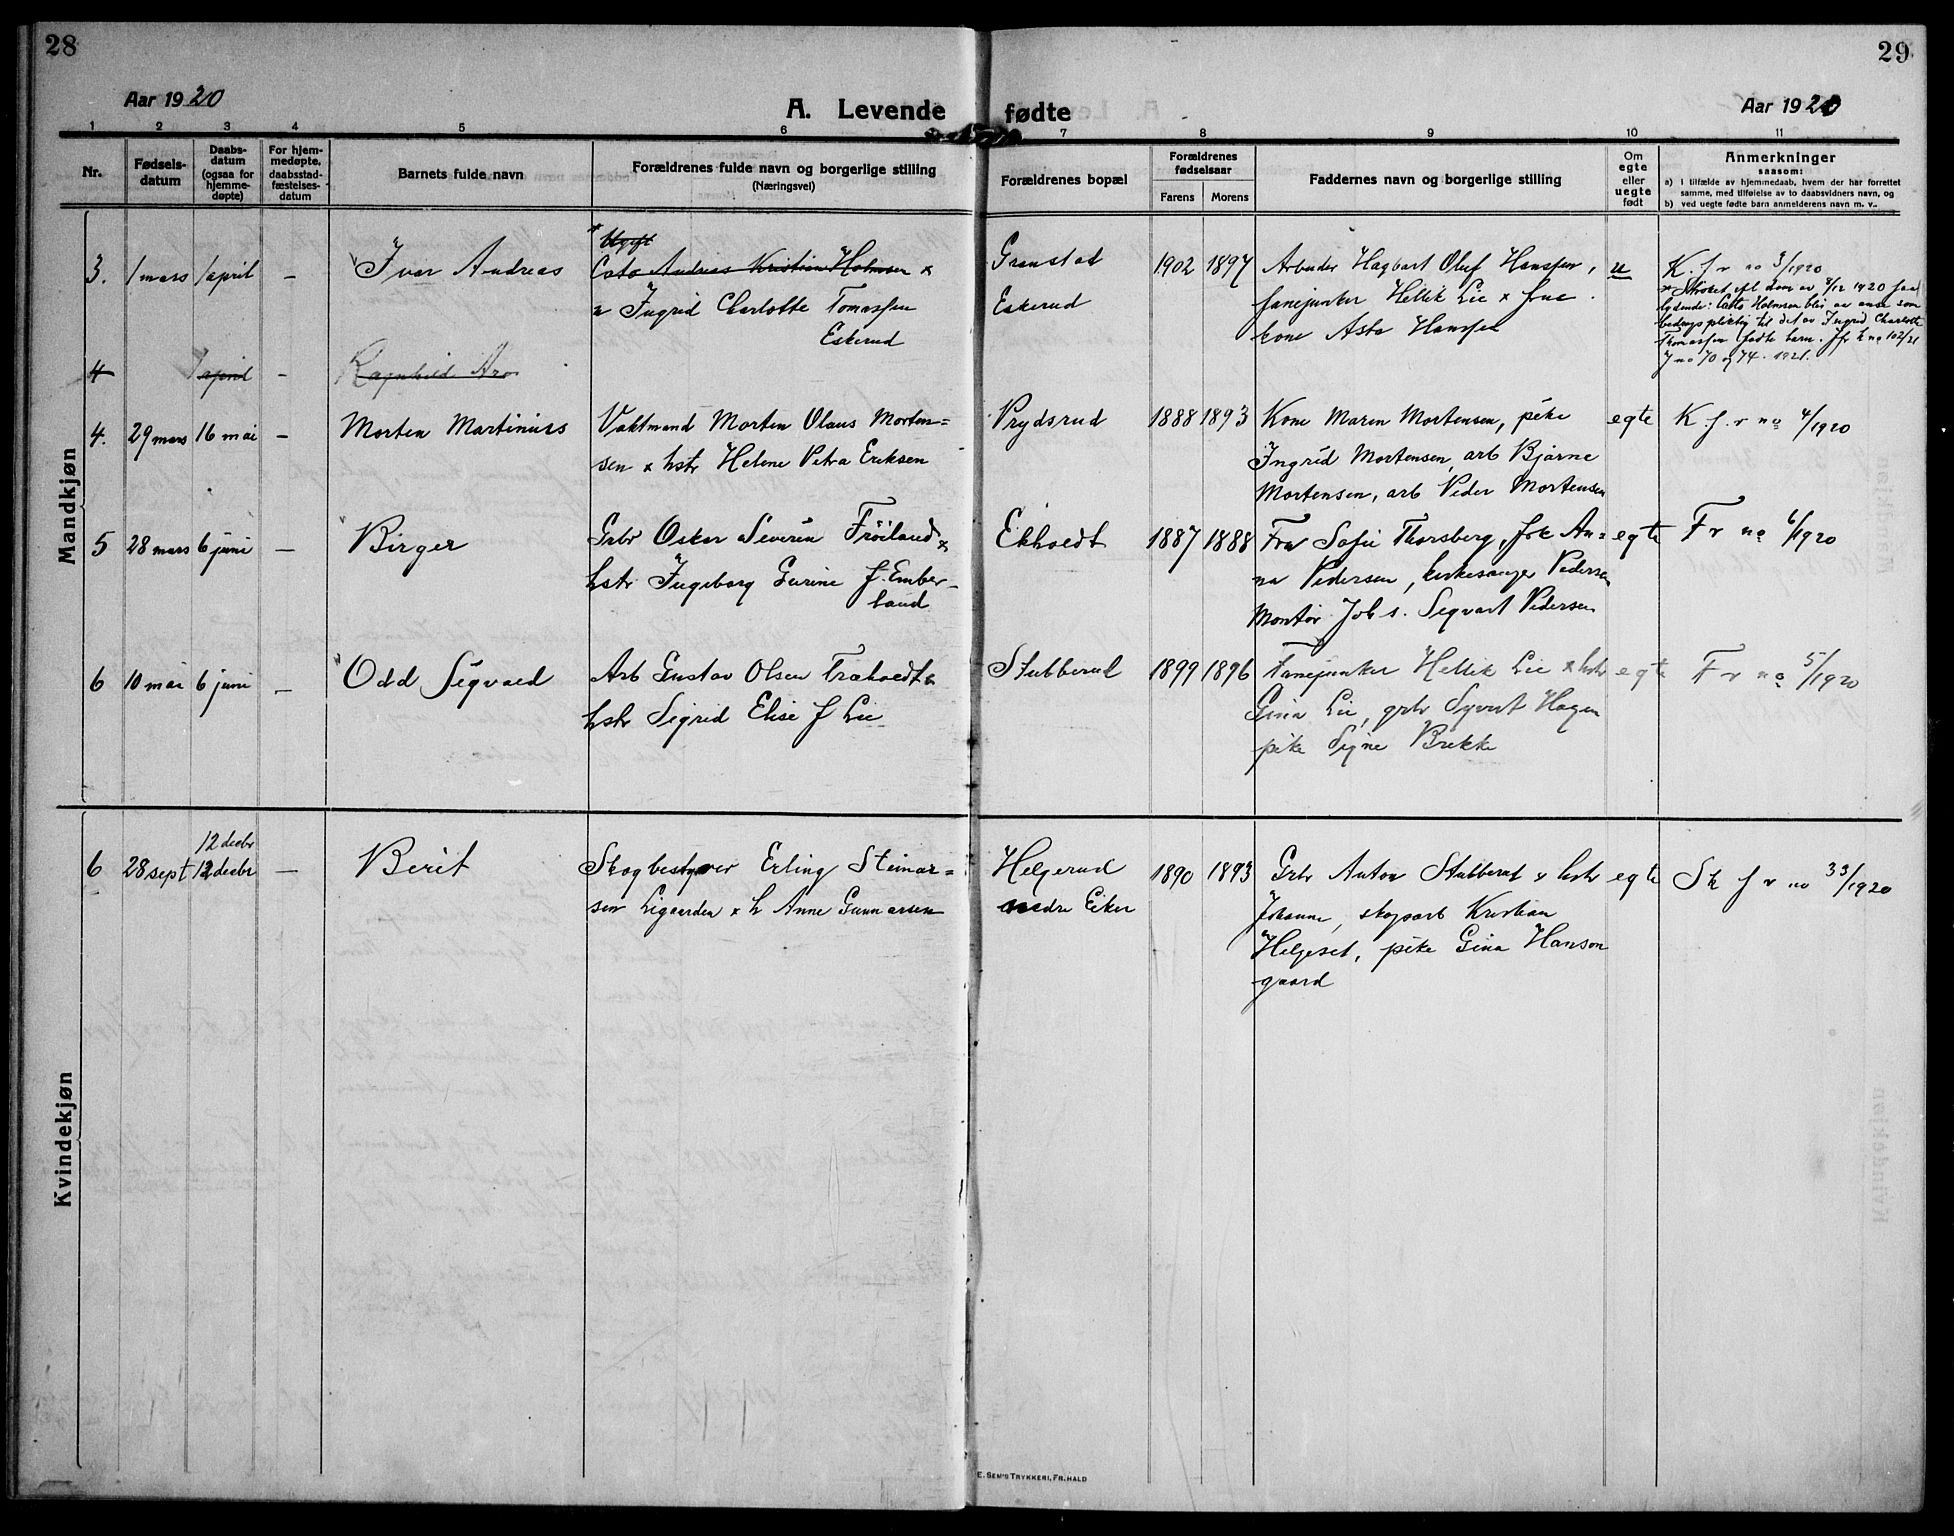 28
29
Aar 1920
A. Levende fødte
Aar 1920
1 2 3 4 5 6 7 8 9 10 11
Nr.
Fødsels-
datum
Daabs-
datum
(ogsaa for
hjemme-
døpte)
For hjem-
medøpte,
daabsstad-
fæstelses-
datum
Barnets fulde navn
Forældrenes fulde navn og borgerlige stilling
(Næringsvei)
Forældrenes bopæl
Forældrenes
fødselsaar
Farens Morens
Faddernes navn og borgerlige stilling
Om
egte
eller
uegte
født
Anmerkninger
saasom:
a) I tilfælde av hjemmedaab, hvem der har forrettet
samme, med tilføielse av to daabsvidners navn, og
b) ved uegte fødte barn anmelderens navn m. v..
Mandkjøn
3. 1 mars 1 april – Ivar Andreas
* Ugift
Cato Andreas Kristian Holmsen x
u Ingrid Charlotte Tomassen
Eskerud
Granstad
Eskerud
1902 1897
Arbeider Hagbart Oluf Hanssen,
fanejunker Hellik Lie x frue
kone Asta Hanssen
u
K. f r no 3/1920
Cato Holmsen blir av anse som
bidragspliktig til det av Ingrid Charlotte
Thomassen fødte barn. Jfr k no 102/21
J no 70 og 74 . 1921.
4 april – Ragnhild
4. 29 mars 16 mai – Morten Martinius
Vaktmand Morten Olaus Morten=
sen x hstr Helene Petra Eriksen
Prydsrud
1888 1893
Kone Maren Mortensen, pike
Ingrid Mortensen, arb Bjarne
Mortensen, arb Peder Mortensen
egte
K. f. r no 4/1920
5 28 mars 6 juni – Birger
Grbr Oskar Severin Frøiland x
hstr Ingeborg Gurine f. Ember-
land
Ekholdt
1887 1888
Fru Sofie Thorsberg, frk An=
na Pedersen, kirkesanger Pedersen
Montør Joh s. Sigvart Pedersen
egte
F r no 6/1920
6 10 mai 6 juni – Odd Sigvald
Arb Gustav Olsen Træholdt x
hstr Sigrid Elise f Lie
Stubberud
1899 1896
Fanejunker Hellik Lie x hstr
Gina Lie, grbr Syvert Hagen
pike Signe Brekke
egte
F r no 5/1920
Kvindekjøn
12 decbr
6 28 sept 12 decbr – Berit
Skogbestyrer Erling Steinar=
sen Ligaarden x h Anne Gunnarsen
Helgerud
nedre Eiker
1890 1893
Grbr Anton Stubberud x hstr
Johanne, skogarb Kristian
Helgeset, pike Gina Hanson
gaard
egte
Sk f r no 33/1920
E. SEM'S TRYKKERI, FR.HALD